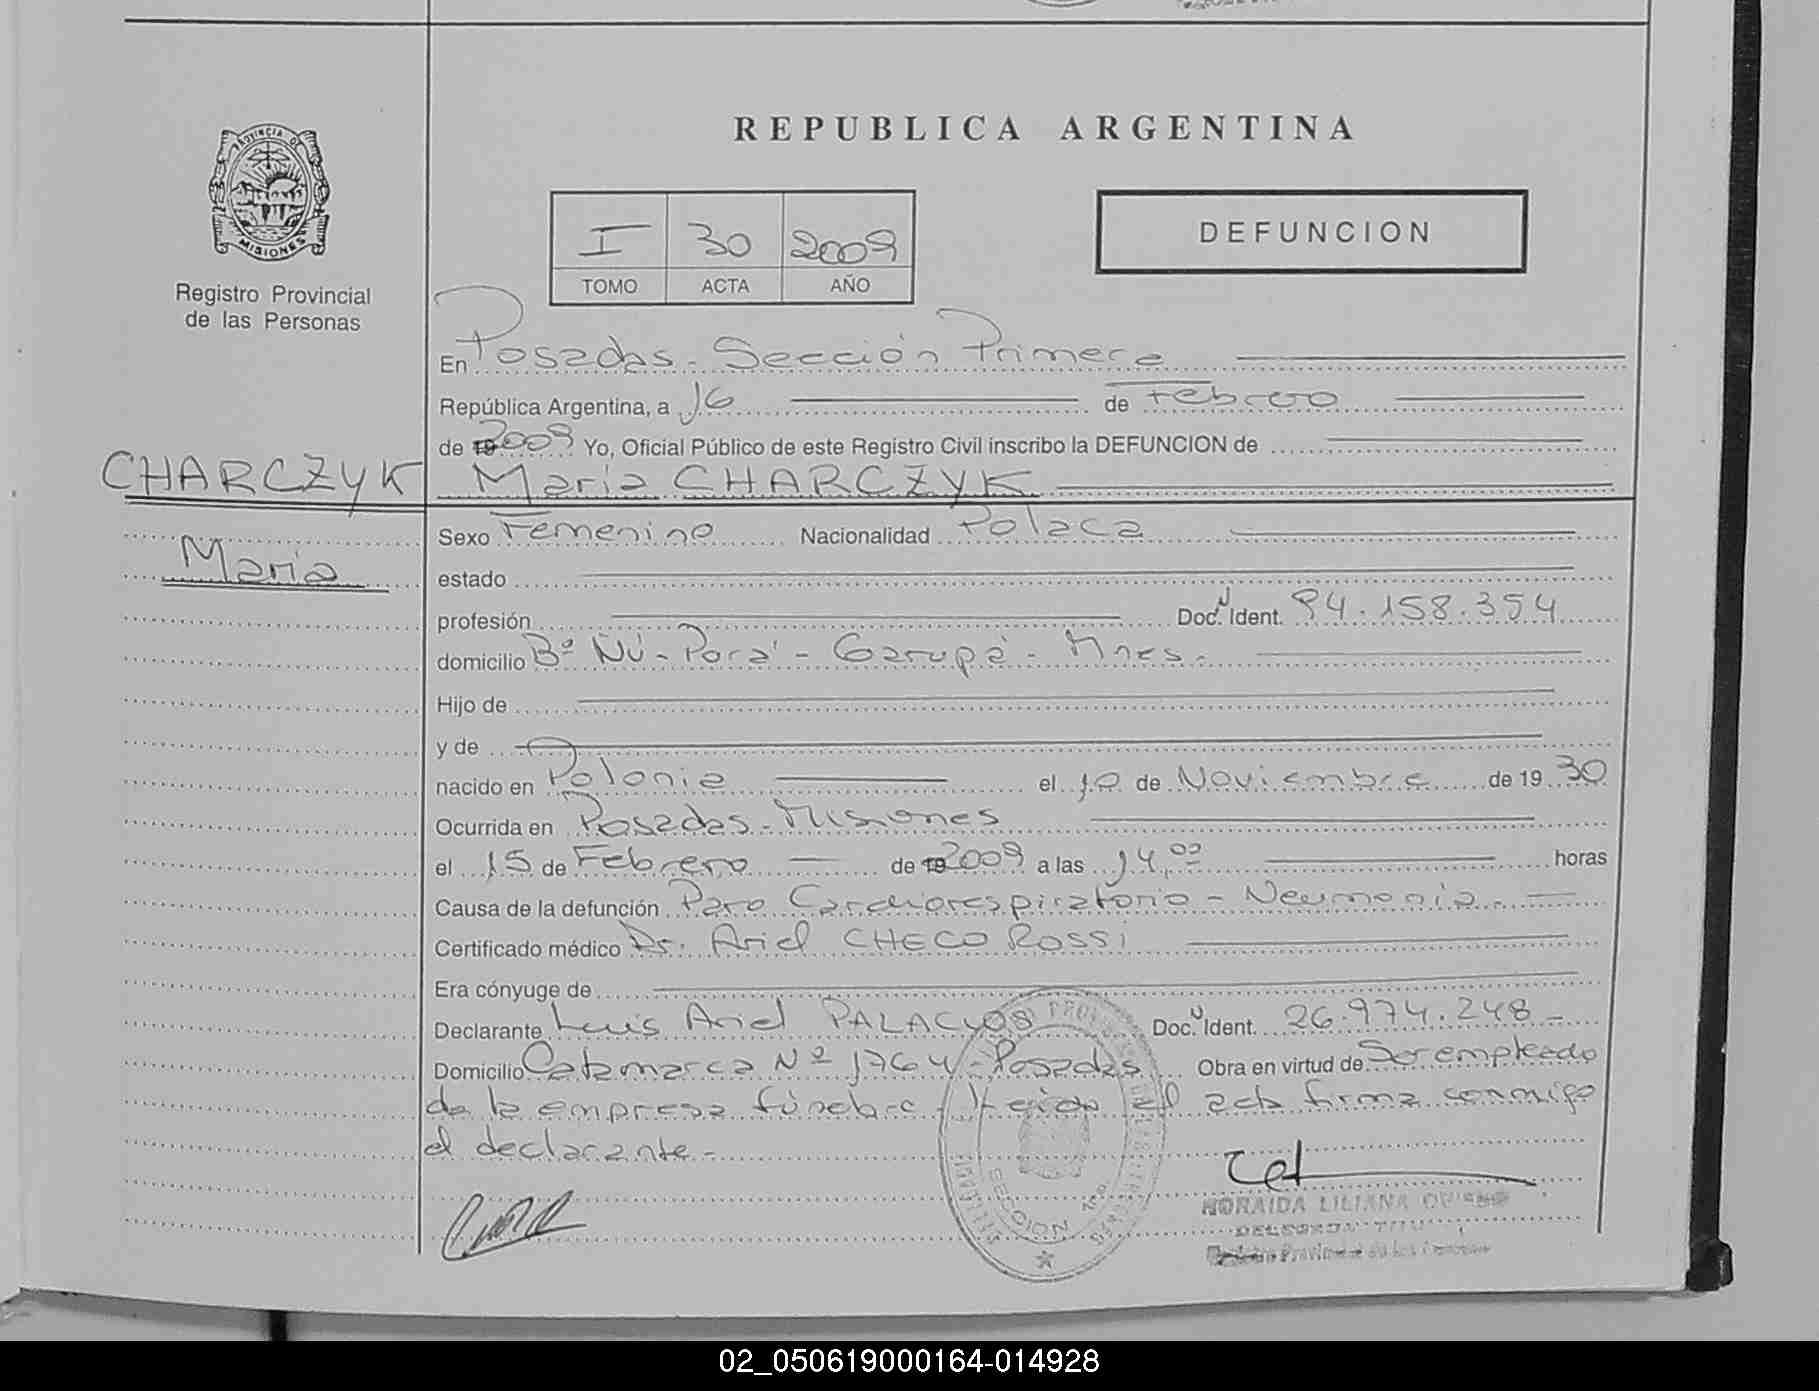 REPUBLICA ARGENTINA
PROVINCIA DE
MISIONES
Registro Provincial
de las Personas
I 30 2009
TOMO ACTA AÑO
DEFUNCION
En Posadas - Sección Primera
República Argentina, a 16 de Febrero
de 2009 Yo, Oficial Público de este Registro Civil inscribo la DEFUNCION de
CHARCZYK
María CHARCZYK
María
Sexo Femenino Nacionalidad Polaca
estado
profesión Doc. Ident. 94.158.354
domicilio Bº Ñú-Porá - Garupá - Mnes.
Hijo de
y de
nacido en Polonia el 10 de Noviembre de 19 30
Ocurrida en Posadas - Misiones
el 15 de Febrero de 2009 a las 14,00 horas
Causa de la defunción Paro Cardiorespiratorio - Neumonía.
Certificado médico Dr. Ariel CHECO ROSSI
Era cónyuge de
Declarante Luis Ariel PALACIOS Doc. Ident. 26.974.248 -
Domicilio Catamarca Nº 1764 - Posadas Obra en virtud de Ser empleado
de la empresa fúnebre. Leída el acta firma conmigo
el declarante -
SECCION 1ra
NORAIDA LILIANA
Registro Provincial de las Personas
02_050619000164-014928